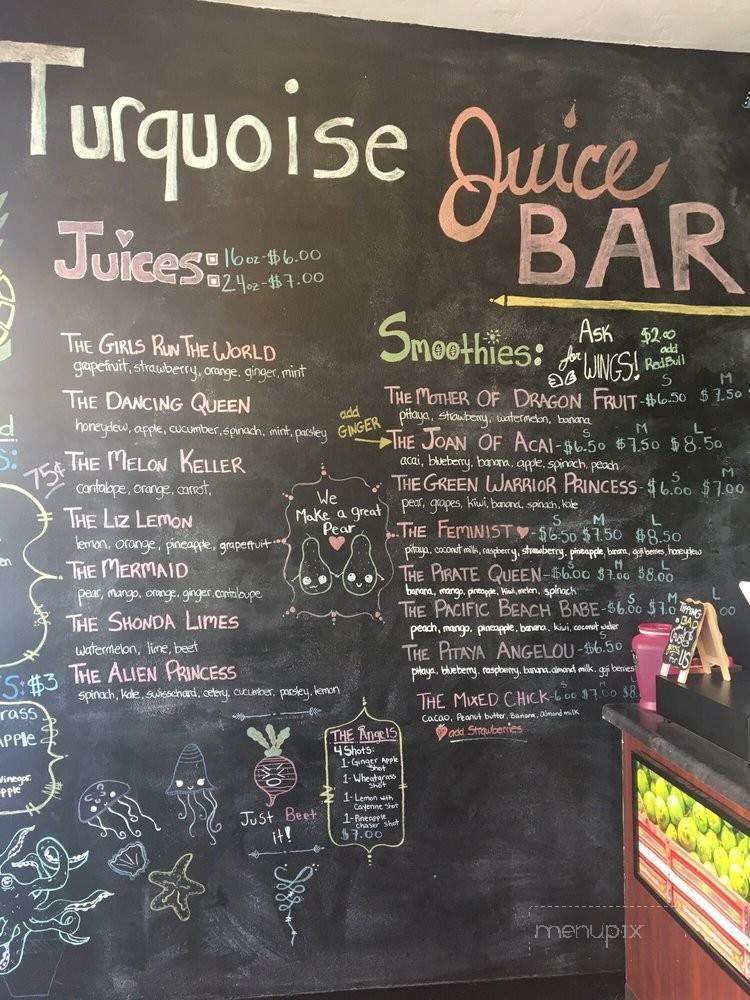 Turquoise Juice
BAR
Juices:
16oz-$6.00
24oz-$7.00
THE GIRLS RUN THE WORLD
grapefruit, strawberry, orange, ginger, mint
THE DANCING QUEEN
honeydew, apple, cucumber, spinach, mint, parsley
75¢
THE MELON KELLER
cantalope, orange, carrot,
THE LIZ LEMON
lemon, orange, pineapple, grapefruit
THE MERMAID
pear, mango, orange, ginger, cantaloupe
THE SHONDA LIMES
watermelon, lime, beet
THE ALIEN PRINCESS
spinach, kale, swisschard, celery, cucumber, parsley, lemon
add
GINGER
We
Make a great
Pear
Smoothies:
Ask
for
WINGS!
$2.00
add
Red Bull
S M
THE MOTHER OF DRAGON FRUIT-$6.50 $7.50
pitaya, strawberry, watermelon, banana
S M L
THE JOAN OF ACAI-$6.50 $7.50 $8.50
acai, blueberry, banana, apple, spinach, peach
S M
THE GREEN WARRIOR PRINCESS-$6.00 $7.00
pear, grapes, kiwi, banana, spinach, kale
S M L
THE FEMINIST-$6.50 $7.50 $8.50
pitaya, coconut milk, raspberry, strawberry, pineapple, banana, goji berries, honeydew
S M L
THE PIRATE QUEEN-$6.00 $7.00 $8.00
banana, mango, pineapple, kiwi, melon, spinach
S M L
THE PACIFIC BEACH BABE-$6.00 $7.0 00
peach, mango, pineapple, banana, kiwi, coconut water
S
THE PITAYA ANGELOU-$6.50
pitaya, blueberry, raspberry, banana, almond milk, goji berries
S M L
THE MIXED CHICK-6.00 $7.00 $8.
cacao, Peanut butter, Banana, almond milk
add Strawberries
TIPPING
US
THE Angels
4 Shots:
1-Ginger Apple
Shot
1-Wheatgrass
Shot
1-Lemon with
Cayenne Shot
1-Pineapple
chaser shot
$7.00
Just Beet
it!
S:
S: $3
rass
APPLE
Vinegar
menupix